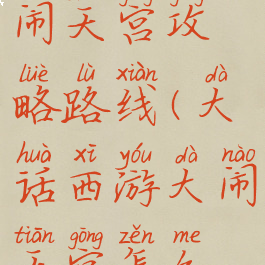 闹天宫攻
lüè lù xiàn dà
略路线(大
huà xī yóu dà nào
话西游大闹
tiān gōng zěn me
天宫怎么